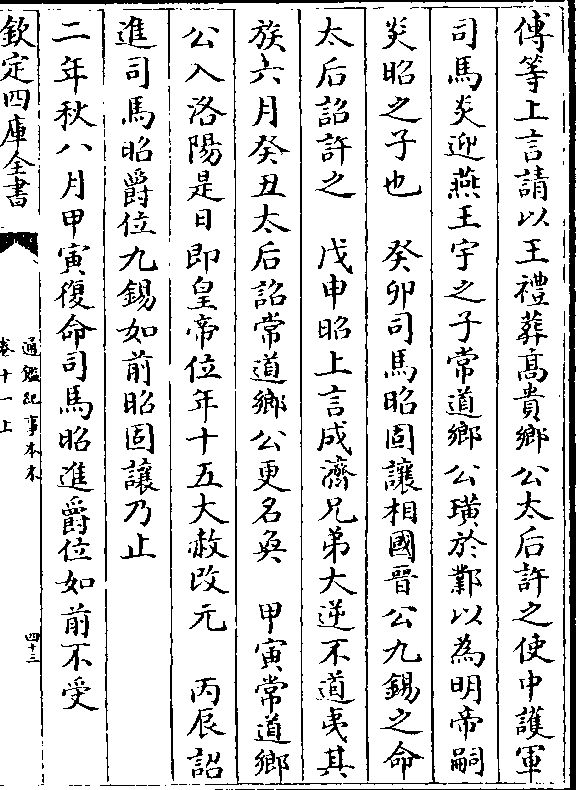 傅等上言請以王禮葬髙貴鄉公太后許之使中護軍
司馬炎迎燕王宇之子常道鄉公璜於鄴以為明帝嗣
炎昭之子也　癸卯司馬昭固讓相國晉公九錫之命
太后詔許之　戊申昭上言成濟兄弟大逆不道夷其
族六月癸丑太后詔常道鄉公更名奐　甲寅常道鄉
公入洛陽是日即皇帝位年十五大赦改元　丙辰詔
進司馬昭爵位九錫如前昭固讓乃止
二年秋八月甲寅復命司馬昭進爵位如前不受
欽定四庫全書
通鑑紀事本末
卷十一上
四十三